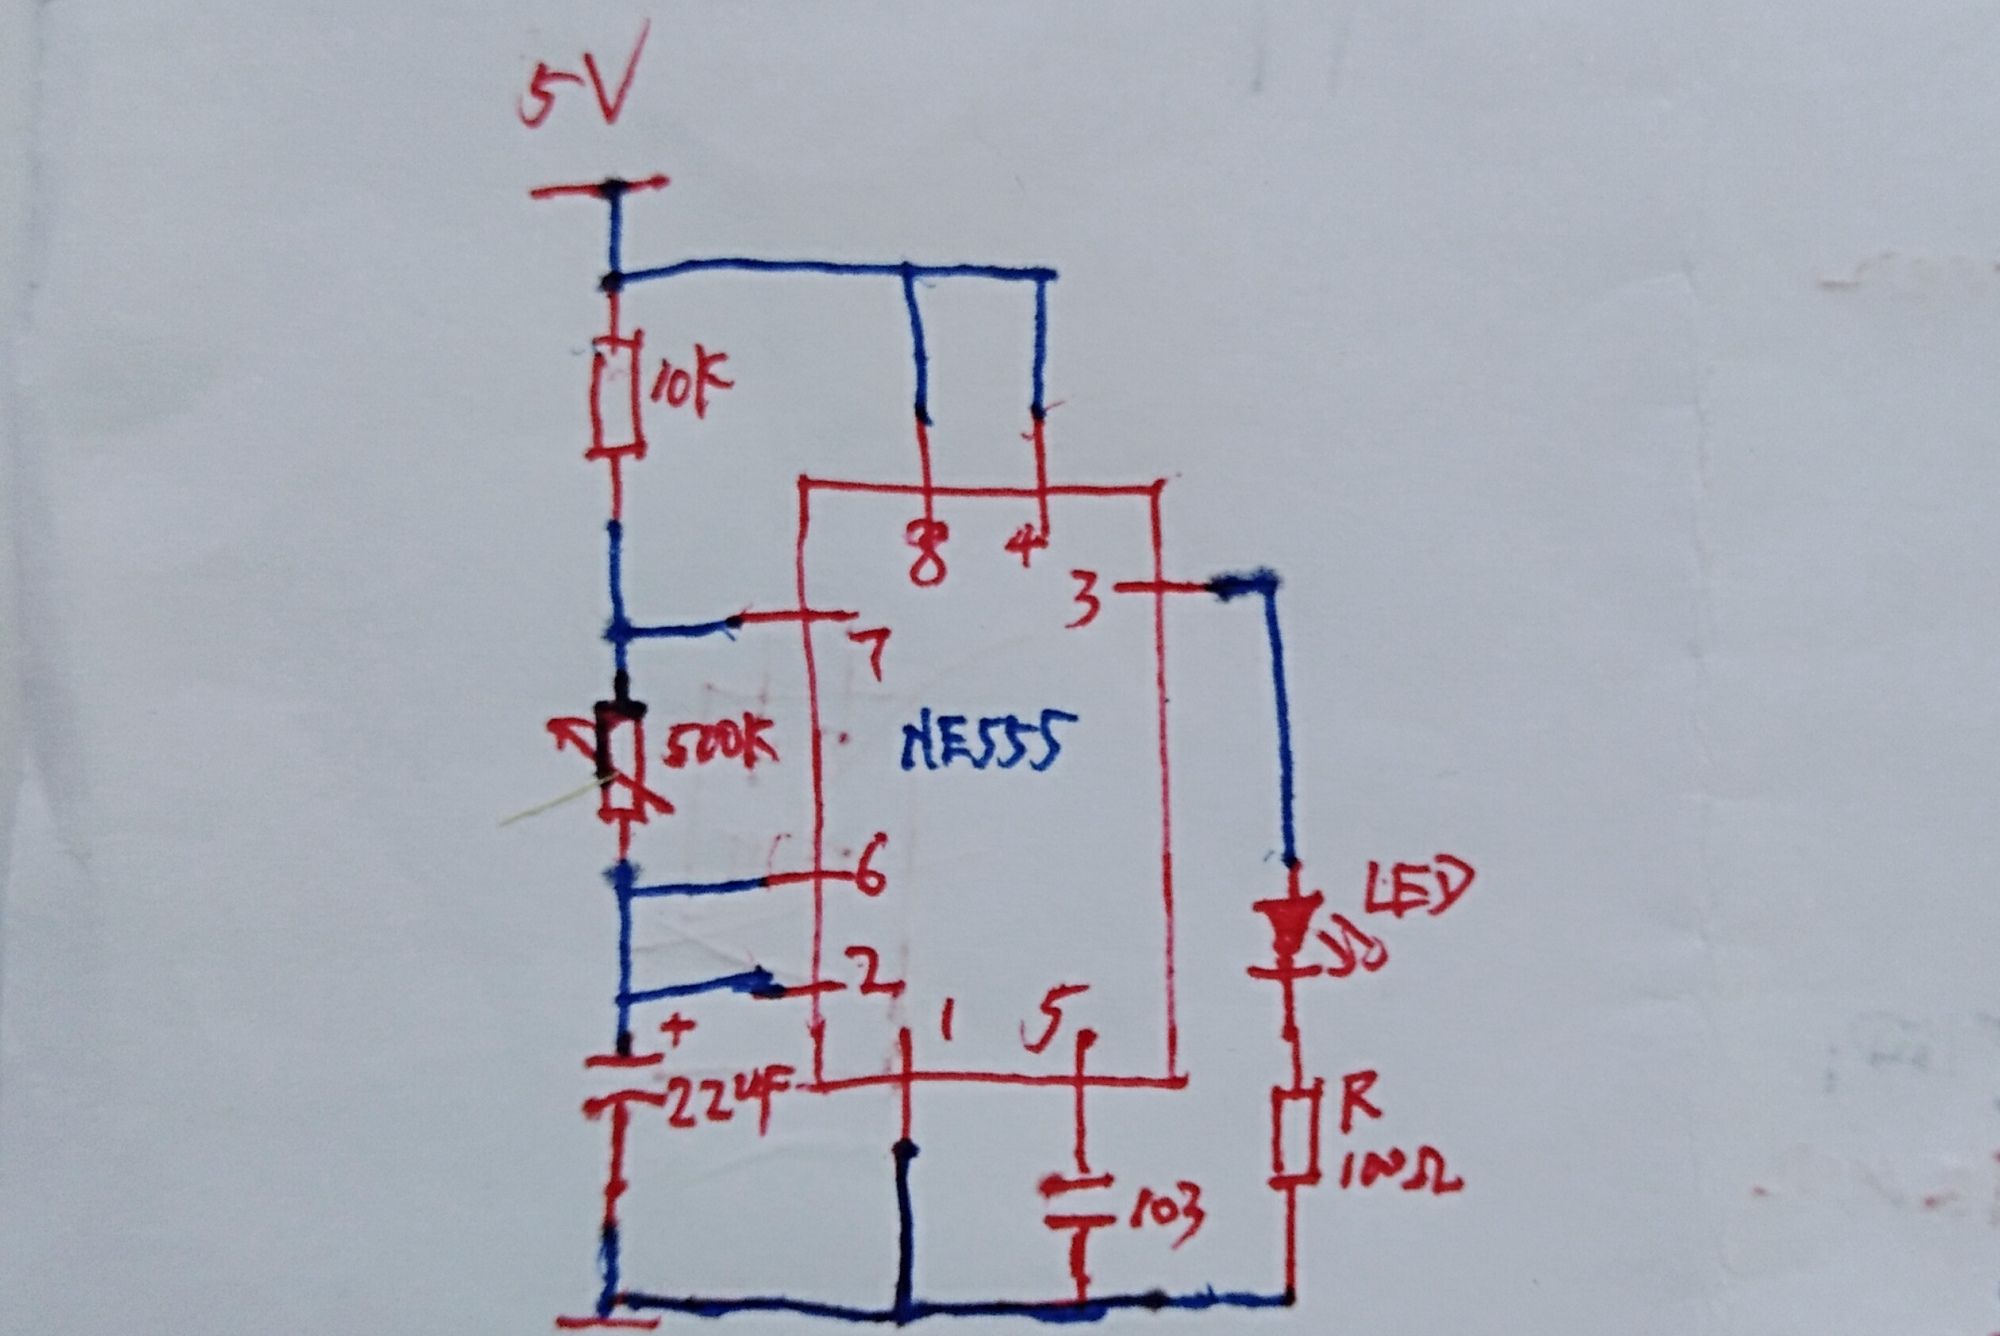 5V
10K
8
4
3
7
500K
NE555
6
LED
2
+
1
5
22uF
R
100Ω
103